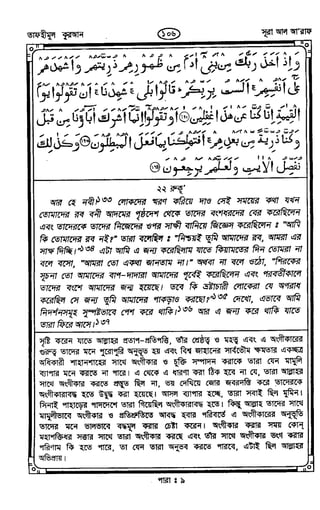 তাফহীমুল কুরআন
১০৬
সূরা আল আ'রাফ
وَإِذْ أَخَذَ رَبُّكَ مِنْ بَنِي آدَمَ مِنْ ظُهُورِهِمْ ذُرِّيَّتَهُمْ وَأَشْهَدَهُمْ
عَلَى أَنْفُسِهِمْ أَلَسْتُ بِرَبِّكُمْ قَالُوا بَلَى شَهِدْنَا أَنْ تَقُولُوا يَوْمَ
الْقِيَمَةِ إِنَّا كُنَّا عَنْ هَذَا غَفِلِينَ أَوْ تَقُولُوا إِنَّمَا أَشْرَكَ آبَاؤُنَا مِنْ قَبْلُ
وَكُنَّا ذُرِّيَّةً مِنْ بَعْدِهِمْ أَفَتُهْلِكُنَا بِمَا فَعَلَ الْمُبْطِلُونَ وَكَذَلِكَ
نُفَصِّلُ الْآيَتِ وَلَعَلَّهُمْ يَرْجِعُونَ
২২ রুকূ'
আর হে নবী!১৩৩ লোকদের স্মরণ করিয়ে দাও সেই সময়ের কথা যখন
তোমাদের রব বনী আদমের পৃষ্ঠদেশ থেকে তাদের বংশধরদের বের করেছিলেন
এবং তাদেরকে তাদের নিজেদের ওপর সাক্ষী বানিয়ে জিজ্ঞেস করেছিলেন : "আমি
কি তোমাদের রব নই?" তারা বলেছিল : "নিশ্চয়ই তুমি আমাদের রব, আমরা এর
সাক্ষ দিচ্ছি।" এটা আমি এ জন্য করেছিলাম যাতে কিয়ামতের দিন তোমরা না
বলে বসো, "আমরা তো একথা জানতাম না।" অথবা না বলে ওঠো, "শিরকের
সূচনা তো আমাদের বাপ-দাদারা আমাদের পূর্বেই করেছিলেন এবং পরবর্তীকালে
তাদের বংশে আমাদের জন্ম হয়েছে। তবে কি ভ্রষ্টাচারী লোকেরা যে অপরাধ
করেছিল সে জন্য তুমি আমাদের পাকড়াও করছো।" দেখো, এভাবে আমি
নিদর্শনসমূহ সুস্পষ্টভাবে পেশ করে থাকি।১৩৬ আর এ জন্য করে থাকি যাতে
তারা ফিরে আসে।১৩৭
সৃষ্টি করেন যাতে আল্লাহর প্রতাপ-প্রতিপত্তি, তাঁর শ্রেষ্ঠত্ব ও মহত্ব এবং এ অংগীকারের
গুরুত্ব তাদের মনে পুরোপুরি অনুভূত হয় এবং বিশ্ব জাহানের সার্বভৌম ক্ষমতার একচ্ছত্র
অধিকারী শাহানশাহের সাথে অংগীকার ও চুক্তি সম্পাদন করাকে তারা যেন মামুলি
ব্যাপার মনে করতে না পারে। এ থেকে এ ধারণা করা ঠিক হবে না যে, তারা আল্লাহর
সাথে অংগীকার করতে প্রস্তুত ছিল না, ভয় দেখিয়ে জোর জবরদস্তি করে তাদেরকে
অংগীকারাবদ্ধ হতে উদ্বুদ্ধ করা হয়েছে। আসল ব্যাপার হচ্ছে, তারা সবাই ছিল মুমিন।
সিনাই পাহাড়ের পাদদেশে তারা গিয়েছিল অংগীকারাবদ্ধ হতে। কিন্তু আল্লাহ তাদের সাথে
মামুলীভাবে অংগীকার ও প্রতিশ্রুতিতে আবদ্ধ হবার পরিবর্তে এ অংগীকারের অনুভূতি
তাদের মনে ভালভাবে বদ্ধমূল করার চেষ্টা করেন। অংগীকার করার সময় কোন্
মহাশক্তিধর সত্তার সাথে তারা অংগীকার করছে এবং তাঁর সাথে অংগীকার ভংগ করার
পরিণাম কি হতে পারে, তা যেন তারা অনুভব করতে পারে, এটাই ছিল আল্লাহর
অভিপ্রায়।
পারা : ৯